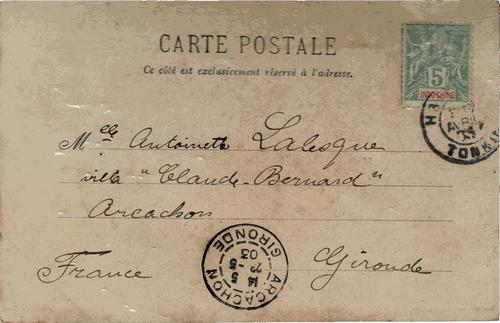 CARTE POSTALE
Ce côté est exclusivement réservé à l'adresse.
5
INDO-CHINE
AVRIL
03
TONKIN
Melle Antoinette Lalesque
villa "Claude-Bernard"
Arcachon
Gironde
France
ARCACHON
14 5
03
GIRONDE